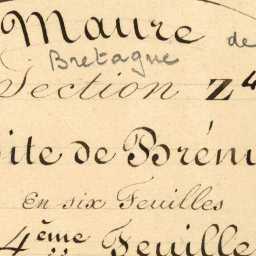 Maure de
Bretagne
Section Z4
ite de Brén
En six Feuilles
4ème Feuille